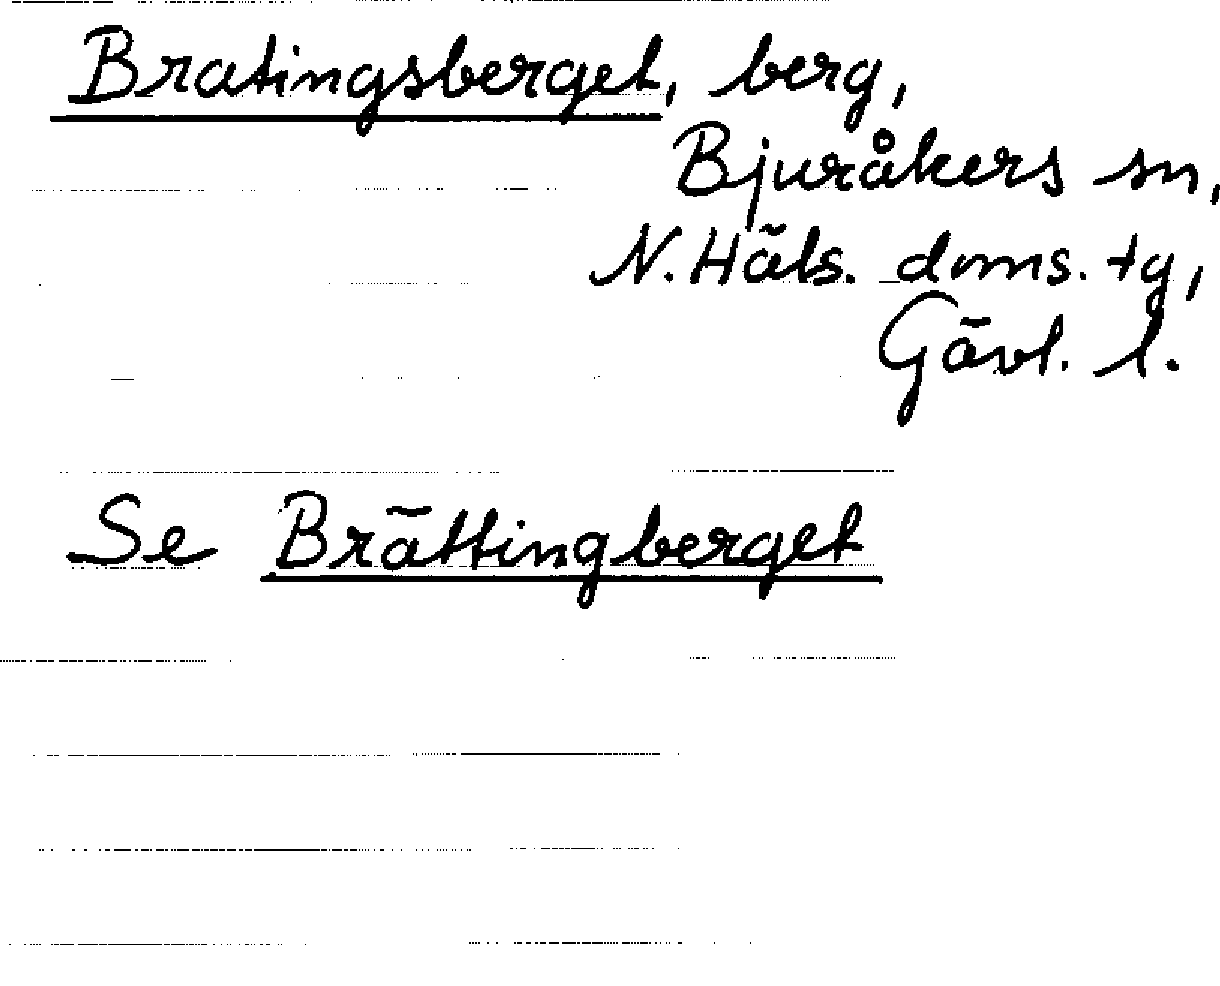 Bratingsberget, berg,
Bjuråkers sn,
N. Häls. doms. tg,
Gävl. l.
Se Brättingberget